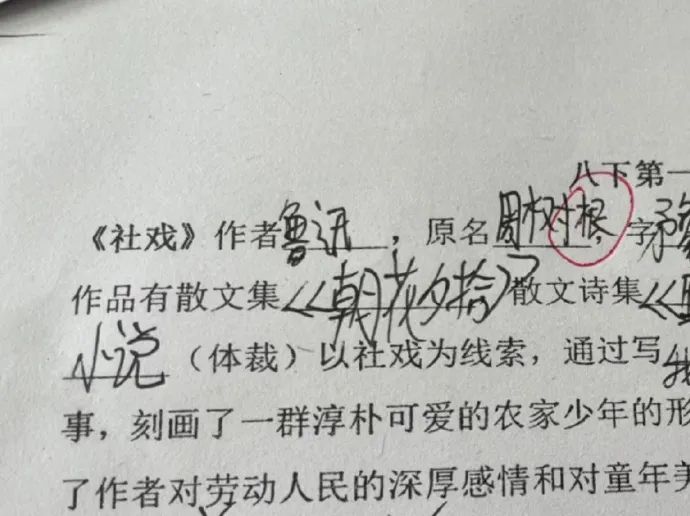 八下第一
《社戏》作者鲁迅，原名周树根，字
作品有散文集《朝花夕拾》散文诗集《
小说（体裁）以社戏为线索，通过写
事，刻画了一群淳朴可爱的农家少年的形
了作者对劳动人民的深厚感情和对童年美